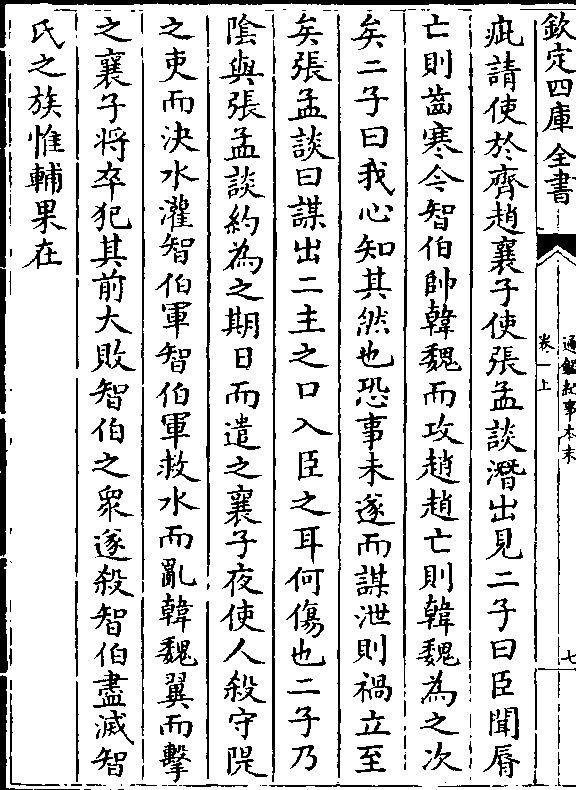 欽定四庫全書
通鑑紀事本末
卷一上
七
疵請使於齊趙襄子使張孟談潛出見二子曰臣聞脣
亡則齒寒今智伯帥韓魏而攻趙趙亡則韓魏為之次
矣二子曰我心知其然也恐事未遂而謀泄則禍立至
矣張孟談曰謀出二主之口入臣之耳何傷也二子乃
陰與張孟談約為之期日而遣之襄子夜使人殺守隄
之吏而決水灌智伯軍智伯軍救水而亂韓魏翼而擊
之襄子將卒犯其前大敗智伯之衆遂殺智伯盡滅智
氏之族惟輔果在